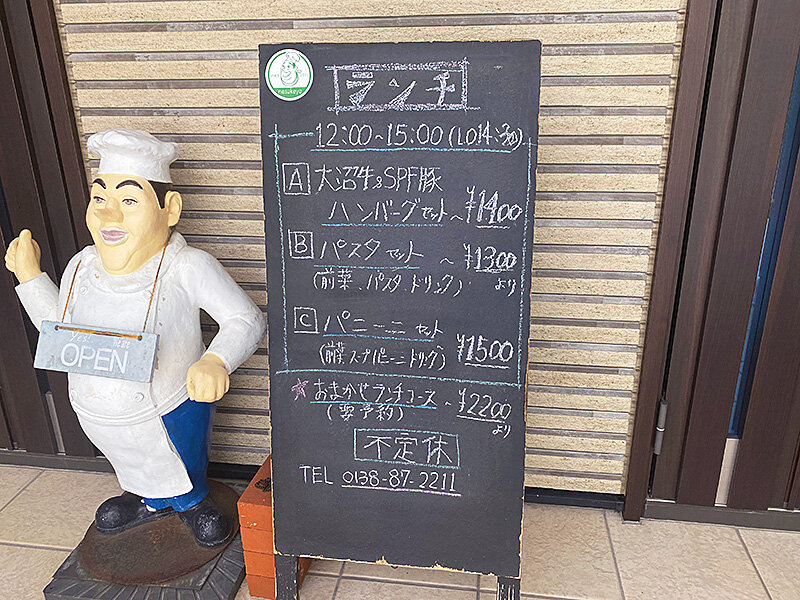 Yes!
OPEN
nasukeyu
ランチ
12:00~15:00(LO14:30)
A 大沼牛&SPF豚
ハンバーグセット~¥1400
B パスタセット ~ ¥1300
(前菜、パスタ ドリンク) より
C パニーニセット
(前菜 スープ パニーニ ドリンク) ¥1500
☆おまかせランチコース~¥2200
(要予約) より
不定休
TEL 0138-87-2211